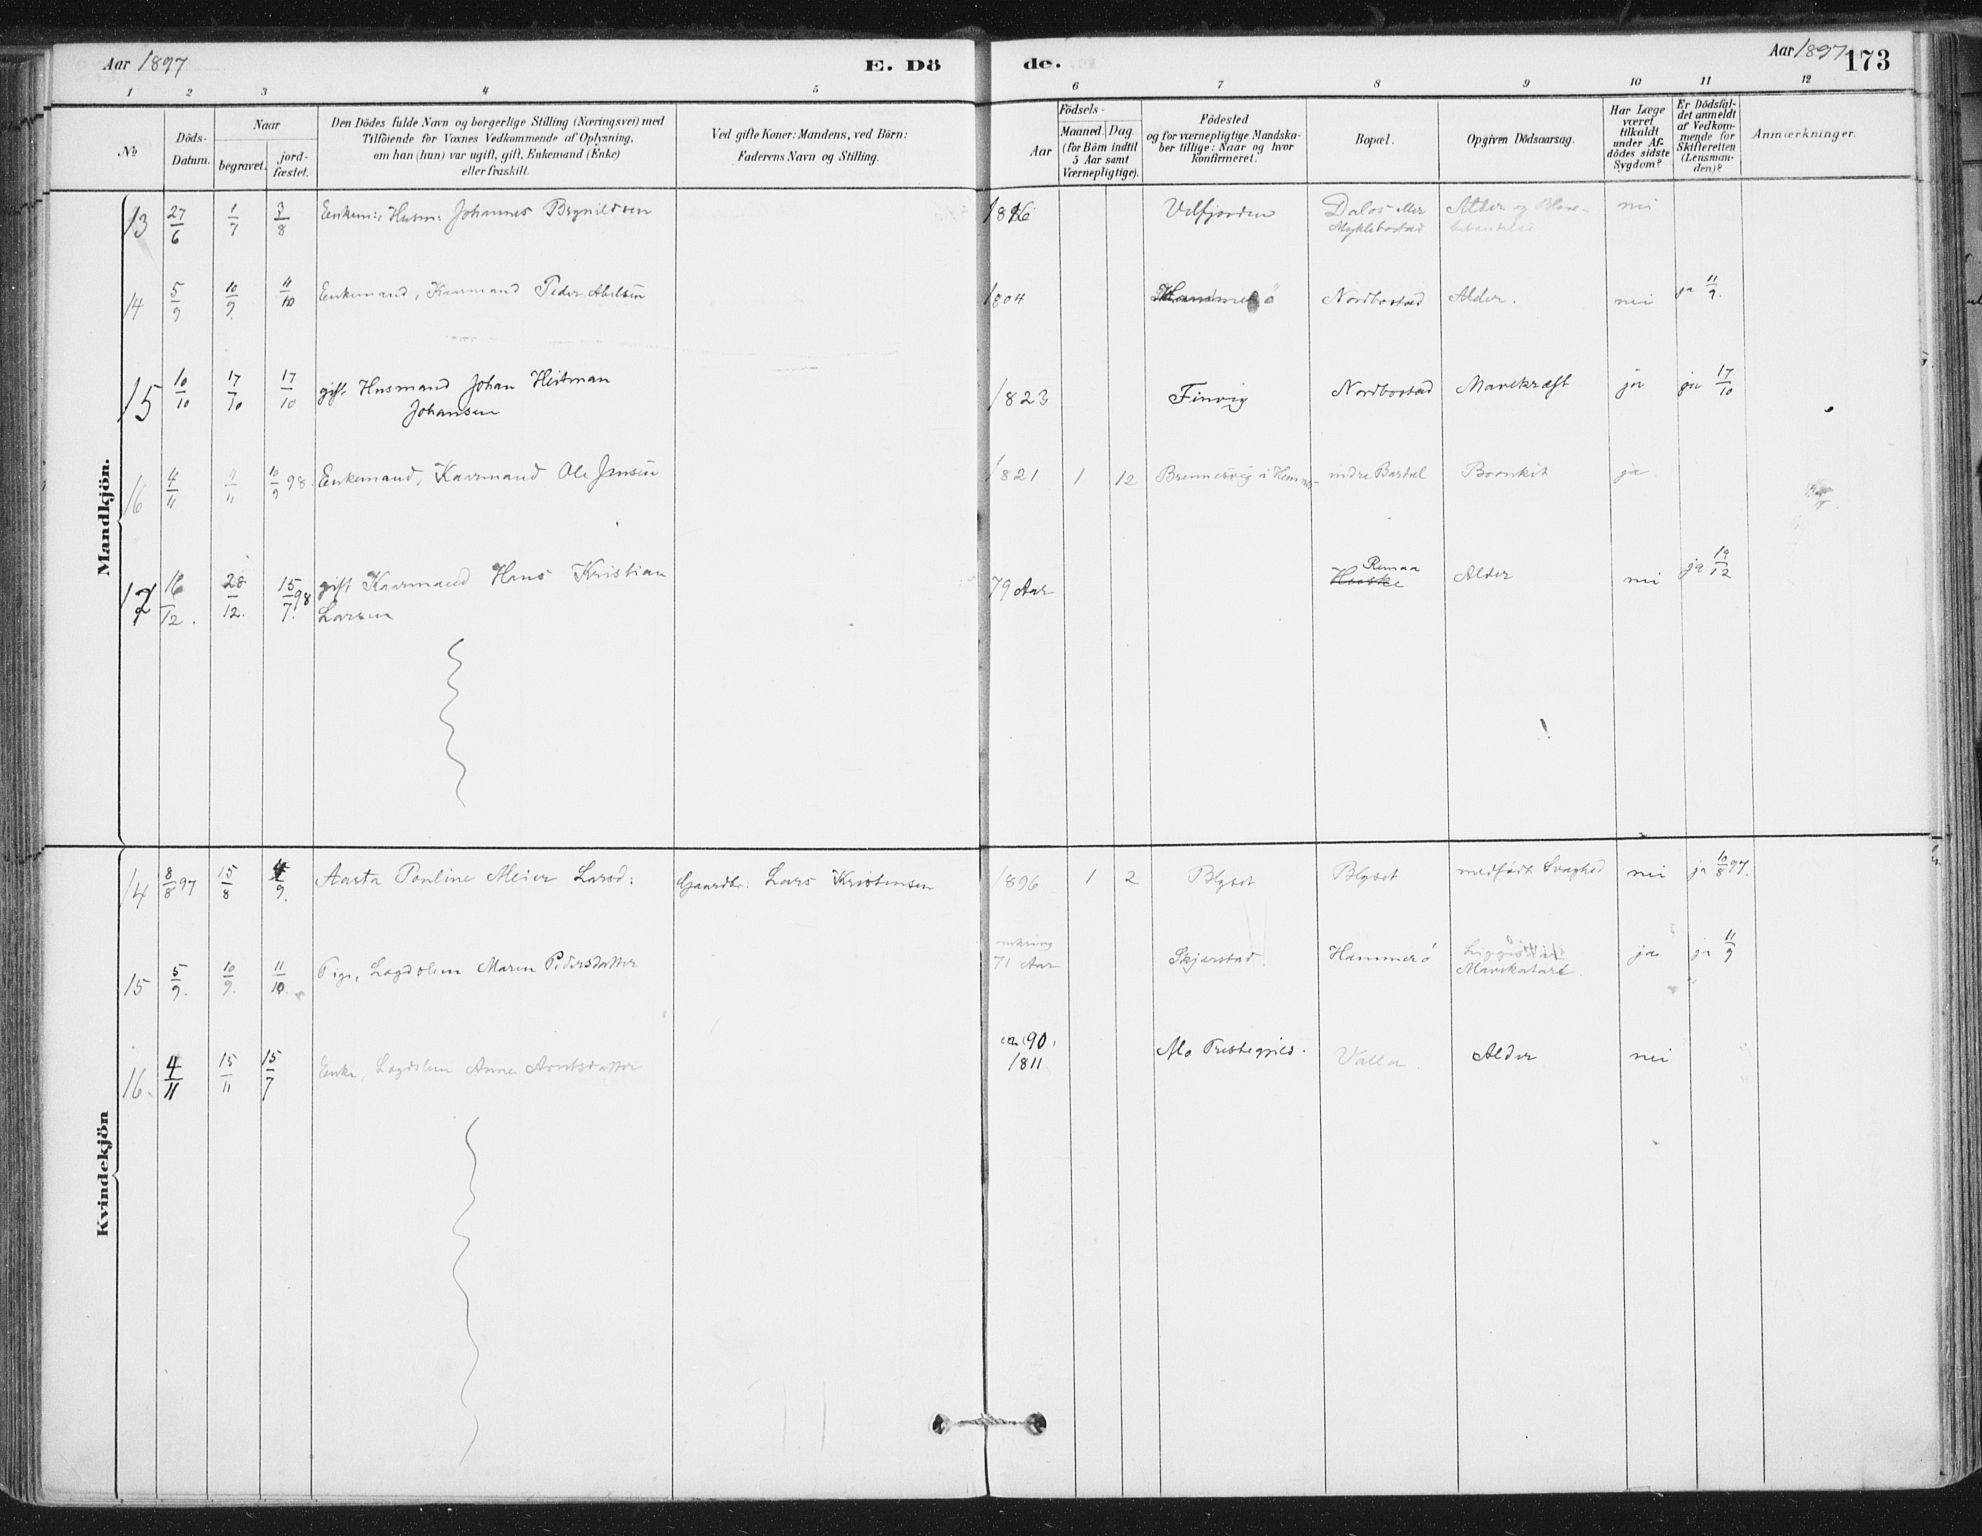 Aar 1897 E. Dö de. Aar 1897 173
1 2 3 4 5 6 7 8 9 10 11 12
№
Döds-Datum.
Naar
begravet.
jord-fæstet.
Den Dödes fulde Navn og borgerlige Stilling (Næringsvei) med
Tilföiende for Voxnes Vedkommende af Oplysning,
om han (hun) var ugift, gift, Enkemand (Enke)
eller fraskilt.
Ved gifte Koner: Mandens, ved Börn:
Faderens Navn og Stilling.
Födsels-
Aar
Maaned. Dag
(for Börn indtil
5 Aar samt
Værnepligtige).
Födested
og for værnepligtige Mandska-
ber tillige: Naar og hvor
konfirmeret.
Bopæl.
Opgiven Dödsaarsag.
Har Læge
været
tilkaldt
under Af-
dödes sidste
Sygdom?
Er Dödsfal-
det anmeldt
af Vedkom-
mende for
Skifteretten
(Lensman-
den)?
Anmærkninger.
Mandkjön.
13 27/6 1/7 3/8 Enkem: Husm: Johannes Brynildsen Velfjorden Dalos Myklebostad Alder og nei
14 5/9 10/9. 11/10 Enkemand, Kaarmand Peder Abelsen 1804 Nordbostad Alder. nei ja 11/9.
15 10/10 17/10 17/10 gift Husmand Johan Heitman
Johansen 1823 Finvig Nordbostad Mavekræft ja ja 17/10
16 4/11 4/11 10/9 98. Enkemand, Kaarmand Ole Jensen 1821 1 12 i indre ja
17 16/12. 28/12. 15/7. 98 gift Kaarmand Hans Kristian
Larsen 79 Aar Remaa Alder nei ja 19/12
Kvindekjön
14 8/8 97 15/8 4/9. Aasta Pauline Meier Larsd: Gaardbr: Lars Kristensen 1896 1 2 Blyset Blyset medfödt Svaghed nei ja 10/8 97.
15 5/9. 10/9. 11/10. Pige, Lægdslem Maren Pedersdatter omkring
71 Aar Skjerstad Hammerö Mavekatarr. ja ja 11/9
16. 4/11 15/11 15/7 Enke, Lægdslem Anne Arntsdatter 90,
1811 Mo Prestegjeld. Valla. Alder nei